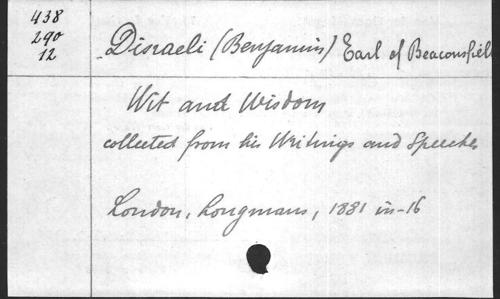 438
290
12
Disraeli (Benjamin) Earl of Beaconsfield
Wit and Wisdom
collected from his Writings and Speeches
London, Longmans, 1881 in-16